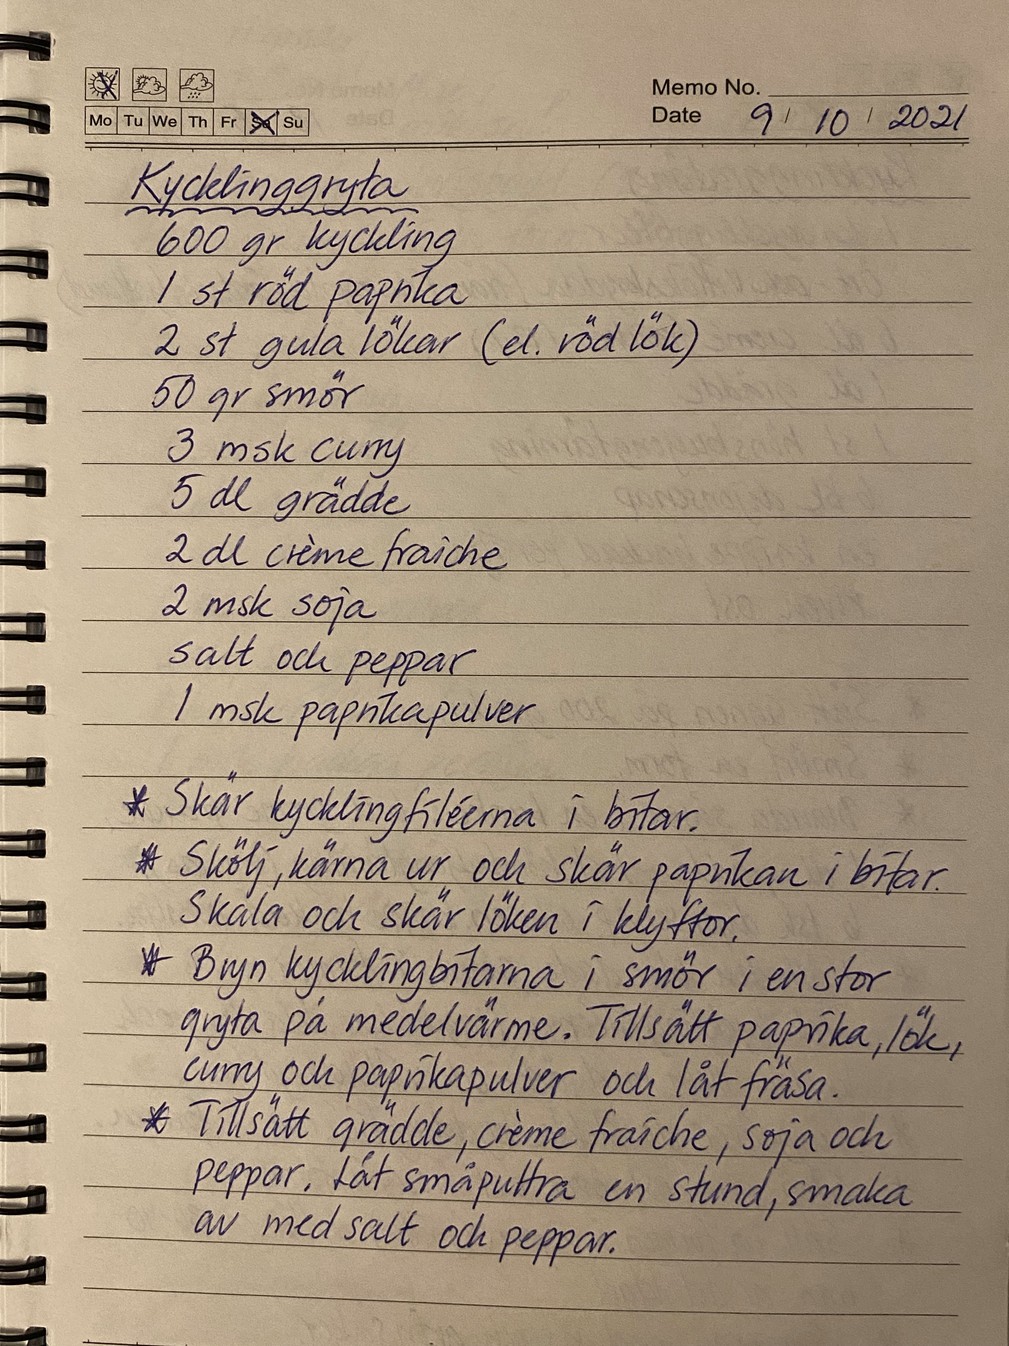 Memo No.
Mo Tu We Th Fr Sa Su
Date 9 / 10 / 2021
Kycklinggryta
600 gr kyckling
1 st röd paprika
2 st gula lökar (el. röd lök)
50 gr smör
3 msk curry
5 dl grädde
2 dl crème fraiche
2 msk soja
salt och peppar
1 msk paprikapulver
* Skär kycklingfiléerna i bitar.
* Skölj, kärna ur och skär paprikan i bitar.
Skala och skär löken i klyftor.
* Bryn kycklingbitarna i smör i en stor
gryta på medelvärme. Tillsätt paprika, lök,
curry och paprikapulver och låt fräsa.
* Tillsätt grädde, crème fraiche, soja och
peppar. Låt småputtra en stund, smaka
av med salt och peppar.